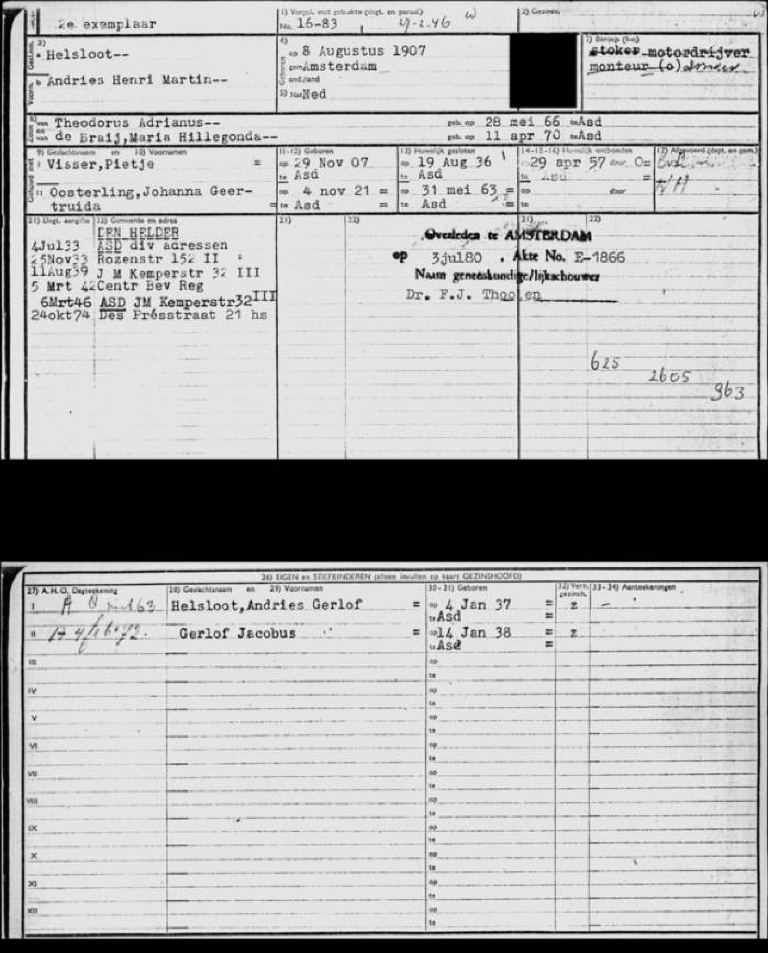 2e exemplaar
1) Vergel. met gebakte (dagt. en paraaf)
No. 16-83
2) Gezinsnr.
3)
Helsloot--
Andries Henri Martin--
4)
op 8 Augustus 1907
gem Amsterdam
5) Nat Ned
7) Beroep (h-o)
stoker motordrijver
monteur (o)
8) van Theodorus Adrianus-- geb. op 28 mei 66 te Asd
en van de Braij,Maria Hillegonda-- geb. op 11 apr 70 te Asd
9) Geslachtsnaam en 10) Voornamen
11-12) Geboren
13) Huwelijk gesloten
14-15-16) Huwelijk ontbonden
17) Afgevoerd (dagt. en gem.)
I Visser,Pietje = op 29 Nov 07 op 19 Aug 36 29 apr 57 door O=
te Asd te Asd Asd =
NH
II Oosterling,Johanna Geer- op 4 nov 21 = op 31 mei 63 = op door
truida = te Asd = te Asd = te
21) Dagt. aangifte 22) Gemeente en adres
21) 22) 21) 22)
DEN HELDER
4Jul33 ASD div adressen
25Nov33 Rozenstr 152 II
11Aug39 J M Kemperstr 32 III
5 Mrt 42 Centr Bev Reg
6Mrt46 ASD JM Kemperstr32III
24okt74 Des Présstraat 21 hs
Overleden te AMSTERDAM
op 3jul80 . Akte No. E-1866
Naam geneeskundige/lijkschouwer
Dr. F.J. Thoolen
625
2605
963
26) EIGEN en STIEFKINDEREN (alleen invullen op kaart GEZINSHOOFD)
27) A.H.O. Dagteekening
28) Geslachtsnaam en 29) Voornamen
30-31) Geboren
32) Verh. gezinsh.
33-34) Aanteekeningen
I Helsloot,Andries Gerlof = op 4 Jan 37 = z -
te Asd =
II Gerlof Jacobus = op 14 Jan 38 = z
te Asd =
III op
te
IV op
te
V op
te
VI op
te
VII op
te
VIII op
te
IX op
te
X op
te
XI op
te
XII op
te